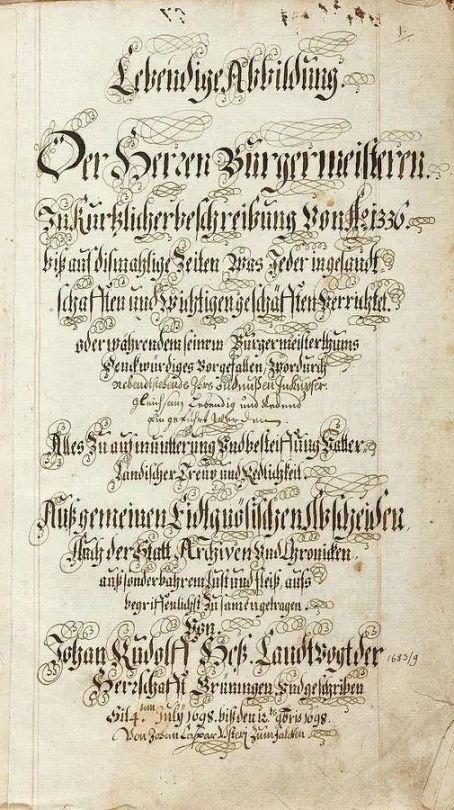 1.
Lebendige Abbildung.
Der Herren Burgermeisteren.
In Kurtzlicher beschreibung Von Aº 1336.
biß auf dismahlige Zeiten, Was Jeder in gesandt
schafften und Wichtigen geschäfften Verrichtet.
oder währendem seinem Burgermeisterthums
Denckwürdiges Vorgefallen, Wordurch
nebendtstehends Jhrs Bildnußen In Kupfer
gleichsam Lebendig und Redend
ein geführt werden
Alles Zu aufmuntterung Und besteiffung Vatter-
Ländischer Treuw und Redlichkeit.
Auß gemeinen Eidtgnösischen Abscheiden,
Auch der Statt Archiven Und Chronicken,
auß sonderbahrem Lust und fleiß, aufs
begriffenlichst Zusamen getragen.
Von
Johan Rudolff Heß, Landtvogt der
1683/9
Herrschafft Grüningen, Und geschriben
Sit 4.ten July 1698. biß den 12.te 9bris 1698.
Von Johan Caspar